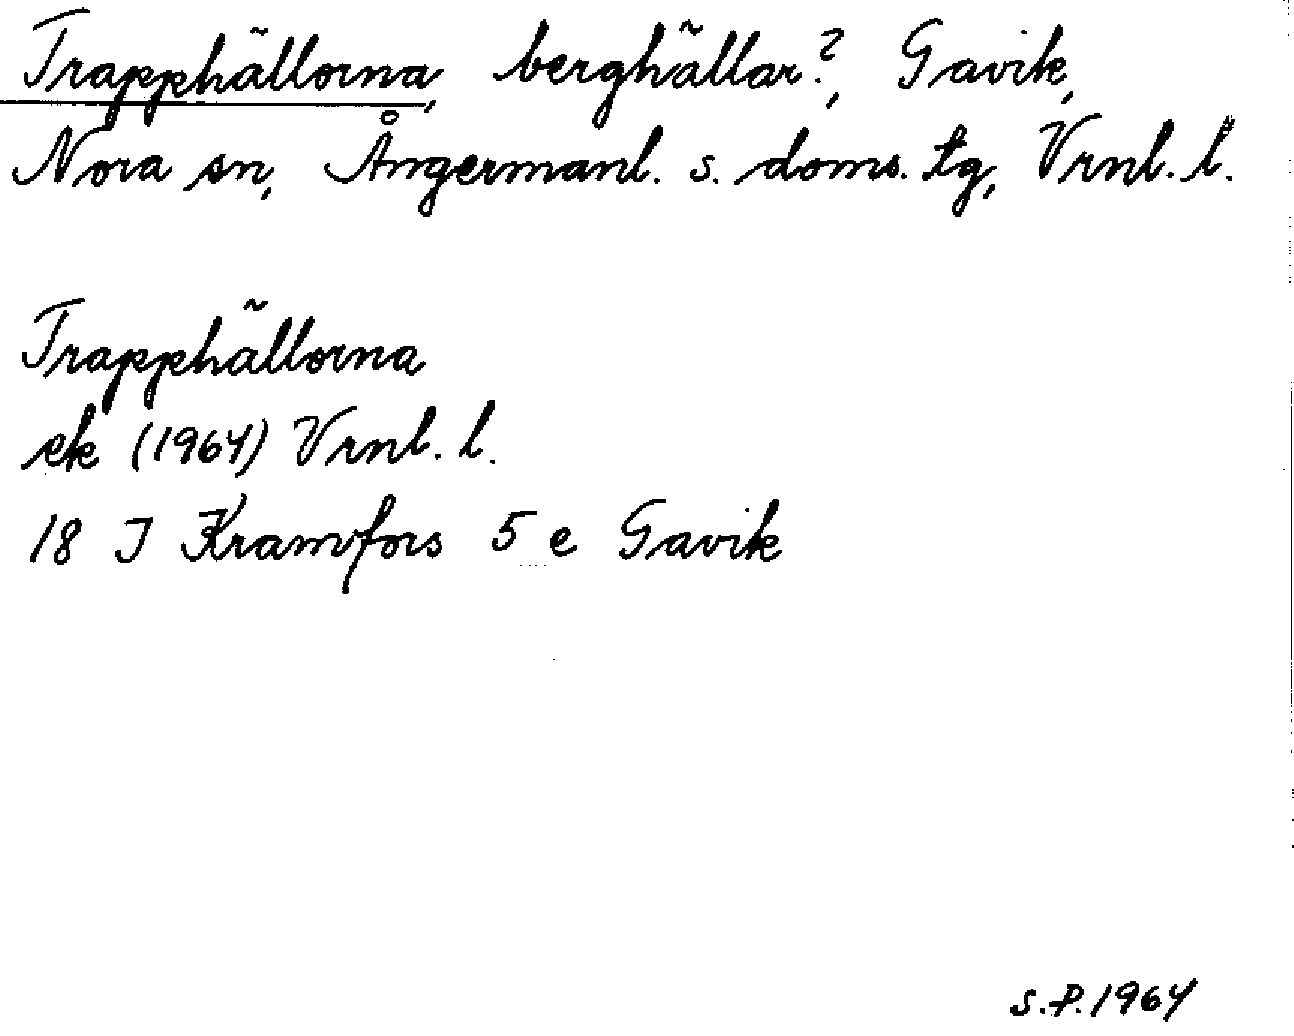 Trapphällorna, berghällar?, Gavik,
Nora sn, Ångermanl. s. doms. tg, Vrnl. l.
Trapphällorna
ek (1964) Vrnl. l.
18 J Kramfors 5 e Gavik
S.P. 1964